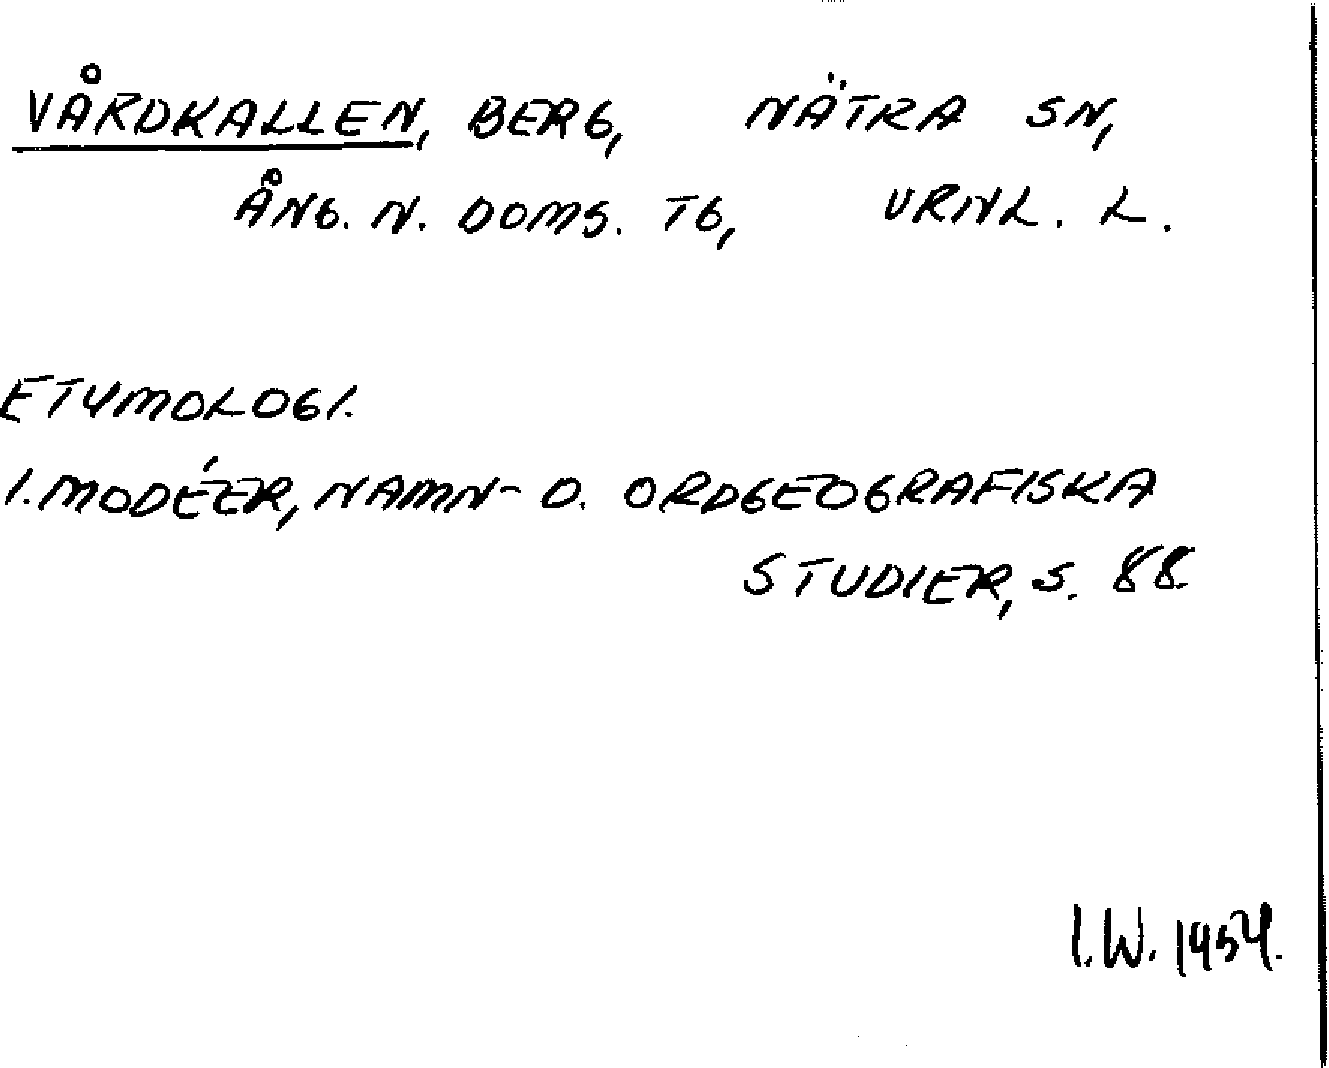 VÅRDKALLEN, BERG, NÄTRA SN,
ÅNG. N. DOMS. TG, VRNL. L.
ETYMOLOGI.
I. MODÉER, NAMN- O. ORDGEOGRAFISKA
STUDIER, S. 88
I.W. 1954.